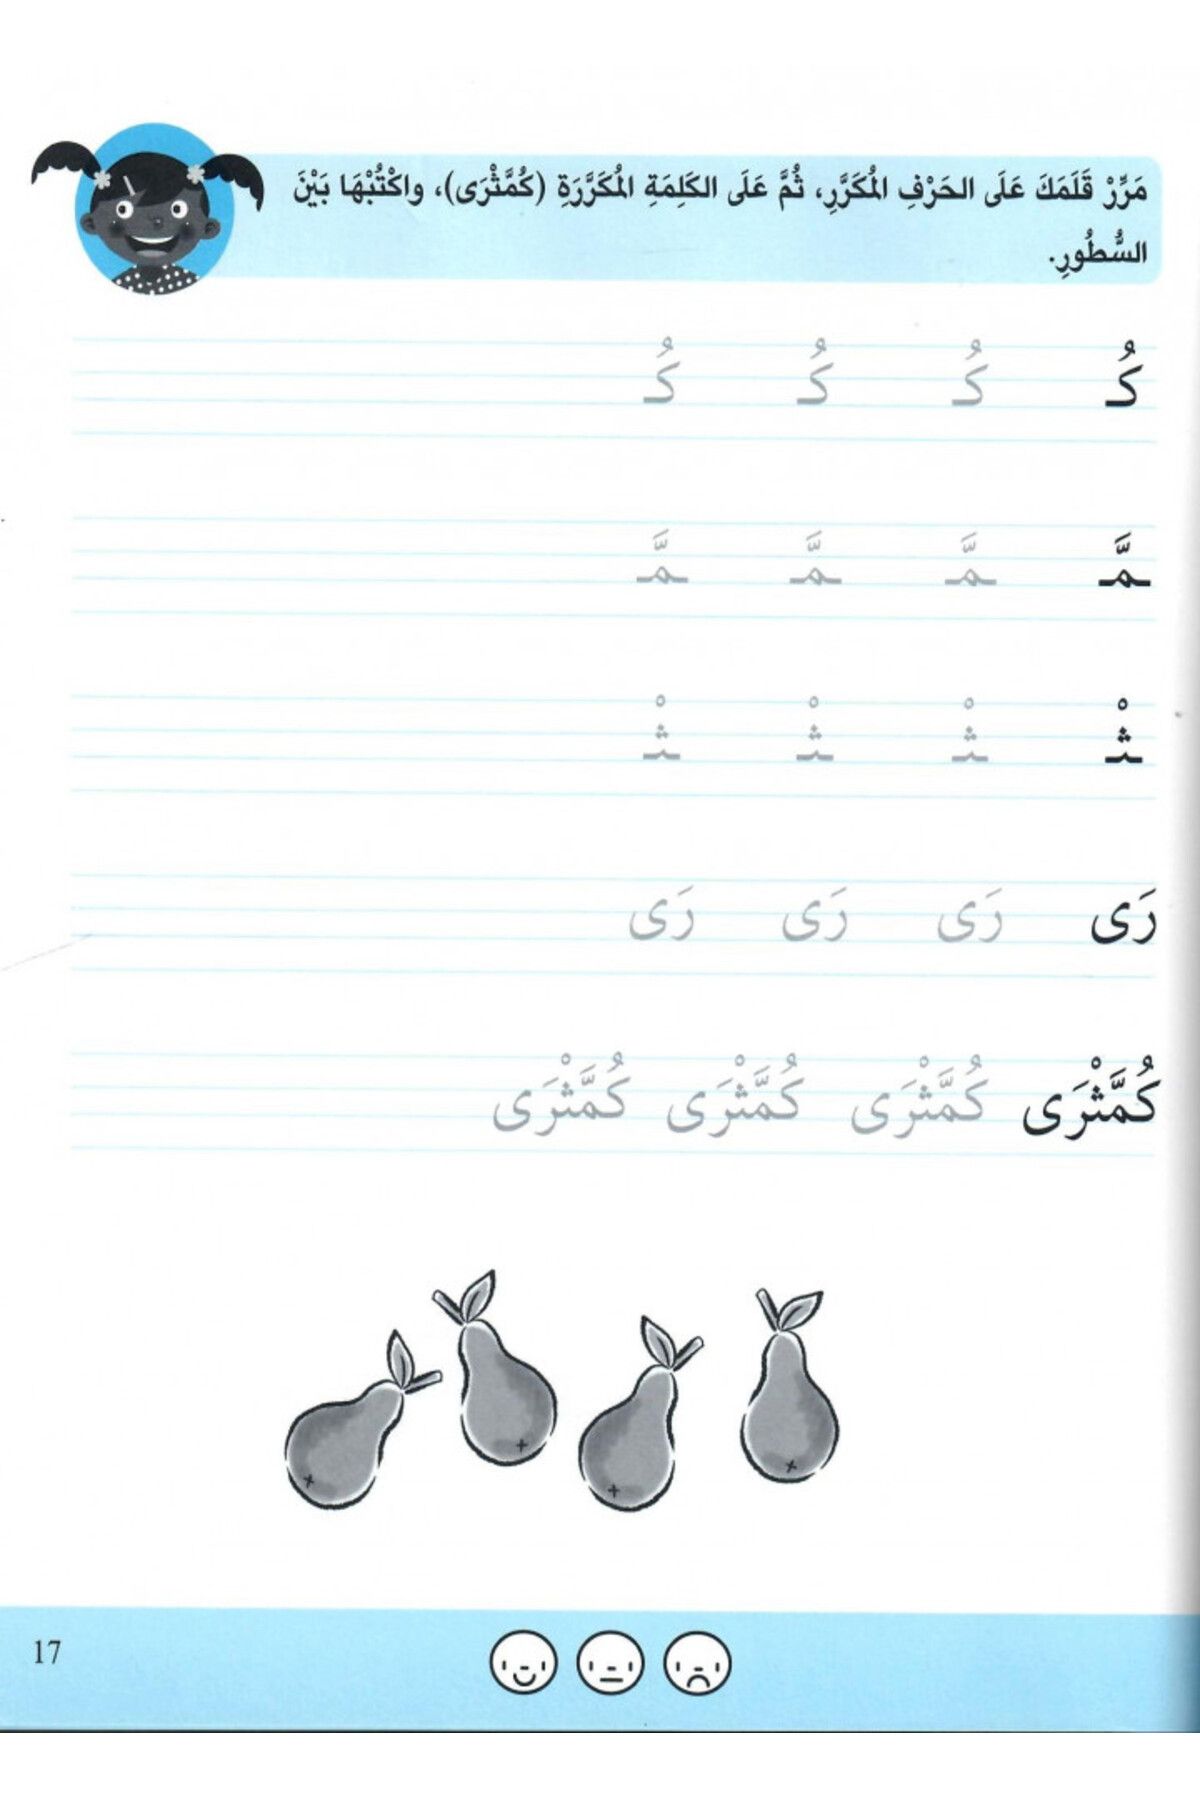 مَرِّرْ قَلَمَكَ عَلَى الحَرْفِ المُكَرَّرِ، ثُمَّ عَلَى الكَلِمَةِ المُكَرَّرَةِ (كُمَّثْرَى)، واكْتُبْهَا بَيْنَ
السُّطُورِ.
كُـ كُـ كُـ كُـ
ـمَّـ ـمَّـ ـمَّـ ـمَّـ
ـثْـ ـثْـ ـثْـ ـثْـ
رَى رَى رَى رَى
كُمَّثْرَى كُمَّثْرَى كُمَّثْرَى كُمَّثْرَى
17